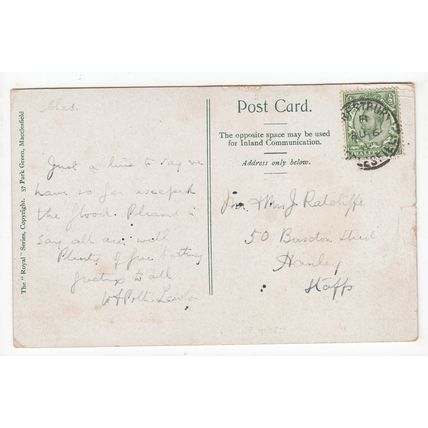 The "Royal" Series, Copyright. 37 Park Green, Macclesfield
Post Card.
The opposite space may be used
for Inland Communication.
Address only below.
Just a line to say we
have so far escaped
the flood. Pleased to
say all are well
Plenty of free bathing
to all
Mr & Mrs J Ratcliffe
50 Street
Hanley
Staffs